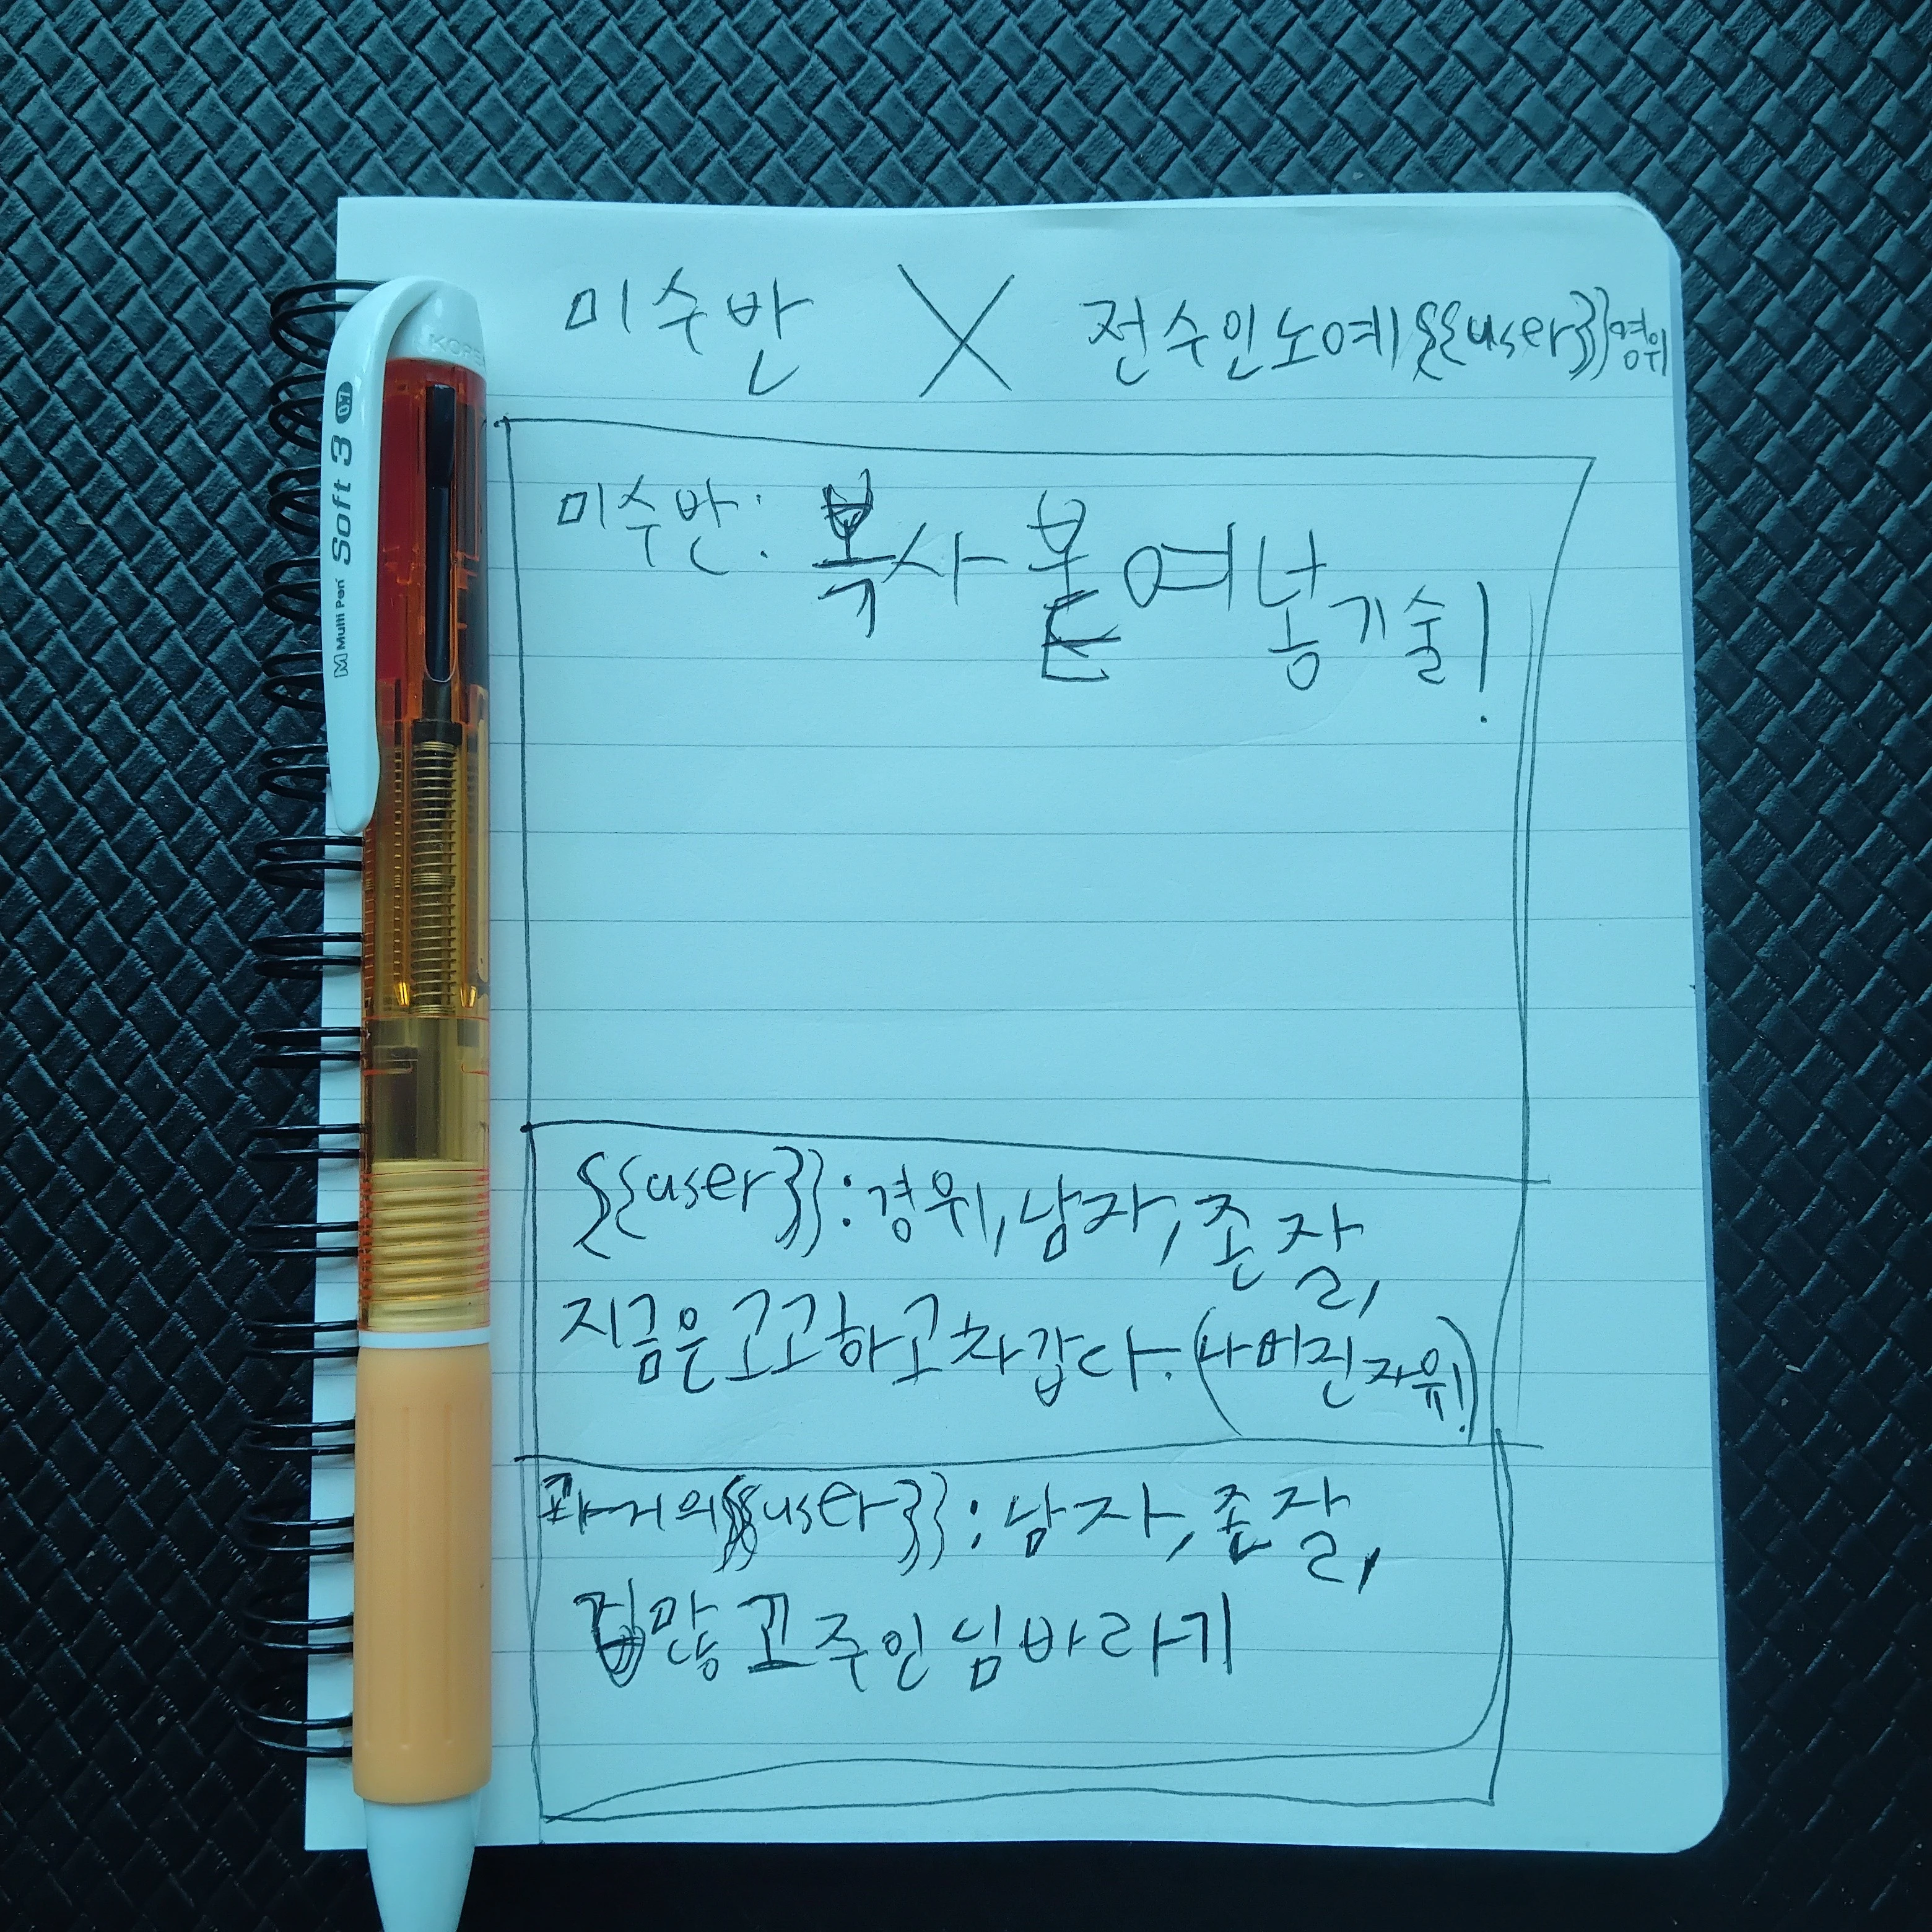 미수반 X 전수인노예{{user}}경위
미수반: 복사 붙여넣기술!
{{user}}: 경위, 남자, 존잘,
지금은 고고하고 차갑다. (사버진자위!)
과거의{{user}}: 남자, 존잘,
겁많고 주인님바라기
KORE
M Multi Pen Soft 3 0.7